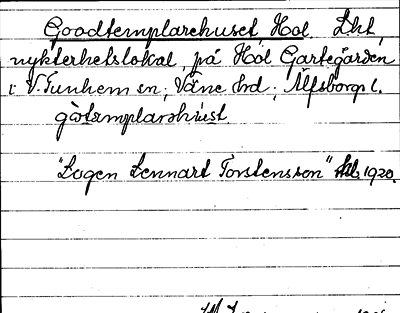 Goodtemplarehuset, Hol. Lht,
nykterhetslokal, på Hol Gastegården
i V. Tunhem sn; Väne hd; Älfsborgs l.
gòtεmplarəhùsεt
"Logen Lennart Torstensson" 1920.